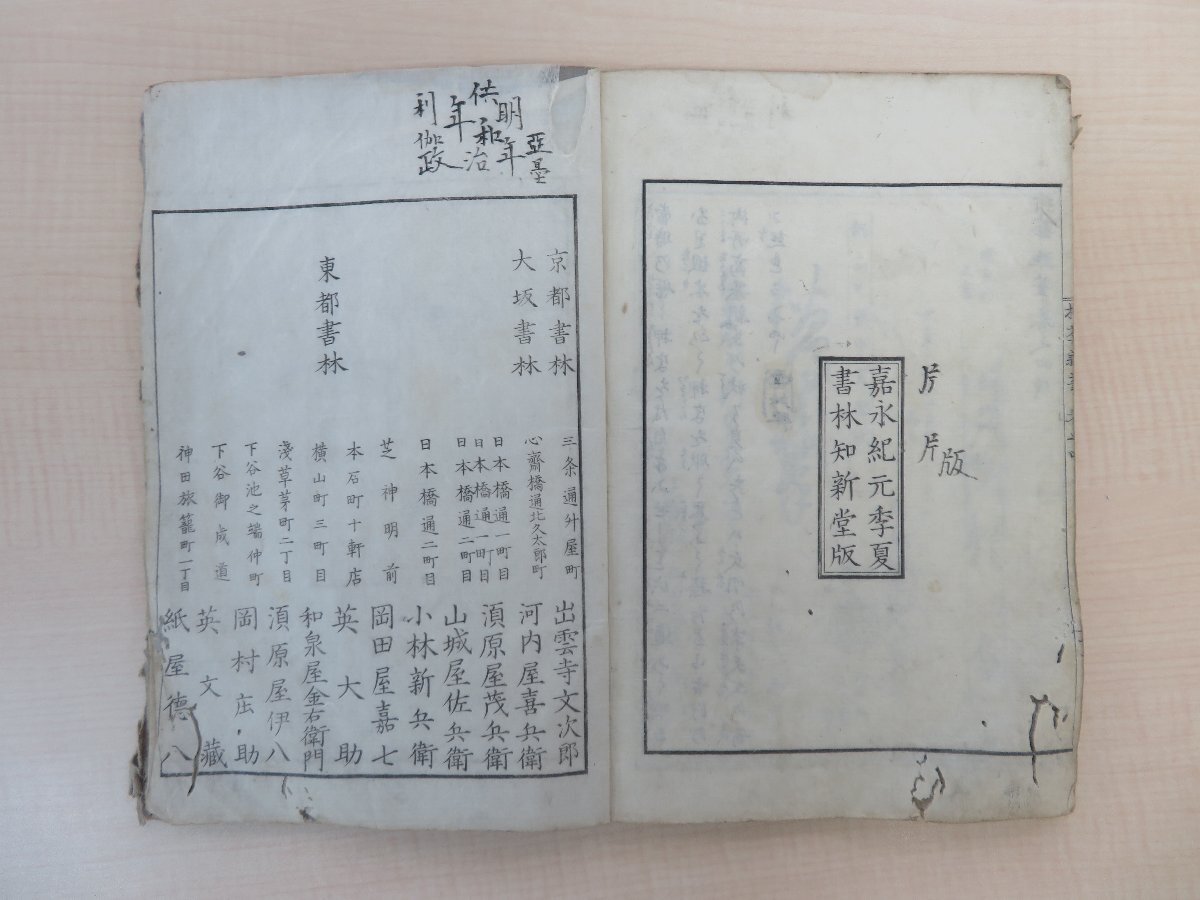 片
片版
嘉永紀元季夏
書林知新堂版
亞墨
明年
供和治
年
利伽政
京都書林
三条通升屋町
出雲寺文次郎
大坂書林
心齋橋通北久太郎町
河内屋喜兵衛
東都書林
日本橋通一町目
須原屋茂兵衛
日本橋通二町目
山城屋佐兵衛
日本橋通二町目
小林新兵衛
芝神明前
岡田屋嘉七
本石町十軒店
英大助
横山町三町目
和泉屋金右衛門
淺草茅町二丁目
須原屋伊八
下谷池之端仲町
岡村庄助
下谷御成道
英文藏
神田旅籠町一丁目
紙屋德八